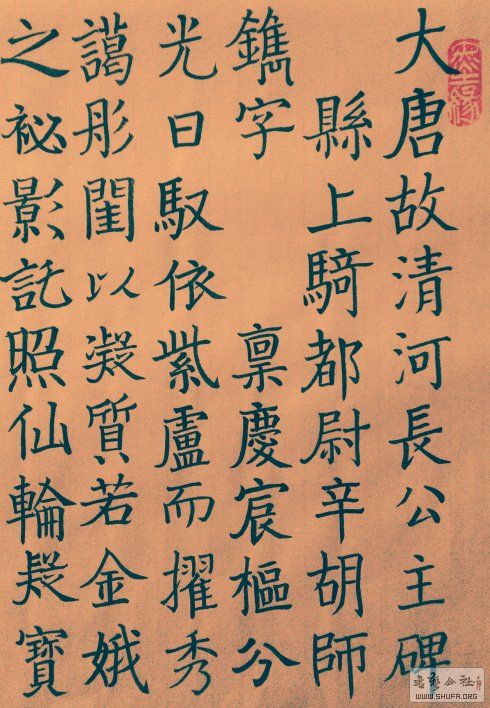 大唐故清河長公主碑
縣上騎都尉辛胡師
鐫字 稟慶宸樞分
光日馭依紫盧而擢秀
譪彤閨以凝質若金娥
之祕影託照仙輪疑寶
書藝公社
WWW.SHUFA.ORG